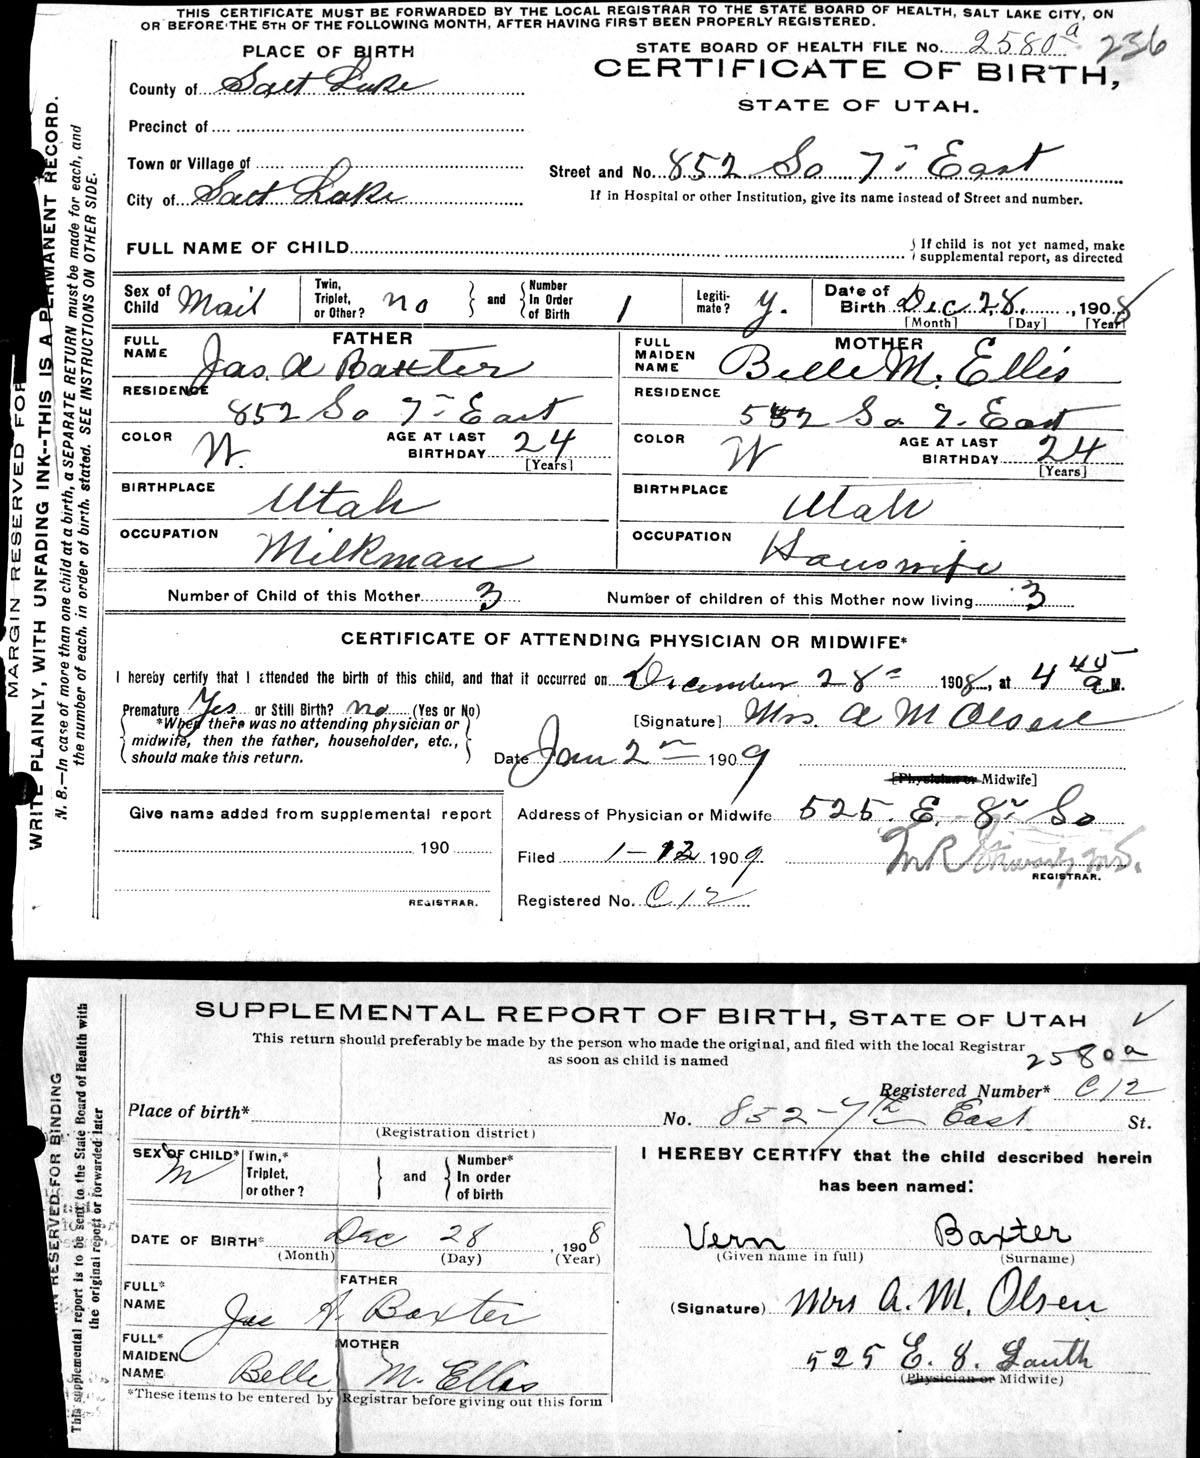 THIS CERTIFICATE MUST BE FORWARDED BY THE LOCAL REGISTRAR TO THE STATE BOARD OF HEALTH, SALT LAKE CITY, ON
OR BEFORE THE 5TH OF THE FOLLOWING MONTH, AFTER HAVING FIRST BEEN PROPERLY REGISTERED.
PLACE OF BIRTH
STATE BOARD OF HEALTH FILE No. 2580a 236
County of Salt Lake
CERTIFICATE OF BIRTH,
STATE OF UTAH.
Precinct of
Town or Village of
Street and No. 852 So 7th East
City of Salt Lake
If in Hospital or other Institution, give its name instead of Street and number.
FULL NAME OF CHILD
If child is not yet named, make supplemental report, as directed
Sex of Child Mail
Twin, Triplet, or Other? no
and
Number In Order of Birth 1
Legitimate? y.
Date of Birth Dec 28, 1908
[Month] [Day] [Year]
FATHER
FULL NAME Jas. A Baxter
MOTHER
FULL MAIDEN NAME Belle M. Ellis
RESIDENCE 852 So 7th East
RESIDENCE 552 So 7. East
COLOR W. AGE AT LAST BIRTHDAY 24 [Years]
COLOR W AGE AT LAST BIRTHDAY 24 [Years]
BIRTHPLACE Utah
BIRTHPLACE Utah
OCCUPATION Milkman
OCCUPATION Houswife
Number of Child of this Mother 3 Number of children of this Mother now living 3
CERTIFICATE OF ATTENDING PHYSICIAN OR MIDWIFE*
I hereby certify that I attended the birth of this child, and that it occurred on December 28th 1908, at 4 45 a. M.
Premature Yes or Still Birth? no (Yes or No)
*When there was no attending physician or midwife, then the father, householder, etc., should make this return.
[Signature] Mrs. A M Olsen
Date Jan 2nd 1909
[Physician or Midwife]
Give name added from supplemental report
190
REGISTRAR.
Address of Physician or Midwife 525. E. 8th So
Filed 1-12 1909
REGISTRAR.
Registered No. C12
MARGIN RESERVED FOR
WRITE PLAINLY, WITH UNFADING INK--THIS IS A PERMANENT RECORD.
N. B.—In case of more than one child at a birth, a SEPARATE RETURN must be made for each, and
the number of each, in order of birth, stated. SEE INSTRUCTIONS ON OTHER SIDE.
SUPPLEMENTAL REPORT OF BIRTH, STATE OF UTAH
This return should preferably be made by the person who made the original, and filed with the local Registrar
as soon as child is named
2580a
Registered Number* C12
Place of birth*
(Registration district)
No. 852-7th East St.
SEX OF CHILD* M
Twin,* Triplet, or other?
and
Number* In order of birth
I HEREBY CERTIFY that the child described herein
has been named:
DATE OF BIRTH* Dec 28, 1908
(Month) (Day) (Year)
Vern Baxter
(Given name in full) (Surname)
FATHER
FULL* NAME Jas A. Baxter
(Signature) Mrs A. M. Olsen
MOTHER
FULL* MAIDEN NAME Belle M. Ellis
525 E. 8. South
(Physician or Midwife)
*These items to be entered by Registrar before giving out this form
IN RESERVED FOR BINDING
This supplemental report is to be sent to the State Board of Health with
the original report or forwarded later